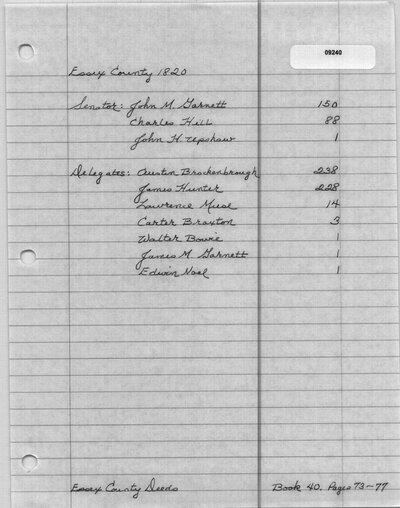 09240
Essex County 1820
Senator: John M. Garnett 150
Charles Hill 88
John H. Upshaw 1
Delegates: Austin Brockenbrough 238
James Hunter 228
Lawrence Muse 14
Carter Braxton 3
Walter Bowie 1
James M. Garnett 1
Edwin Noel 1
Essex County Deeds Book 40. Pages 73-77